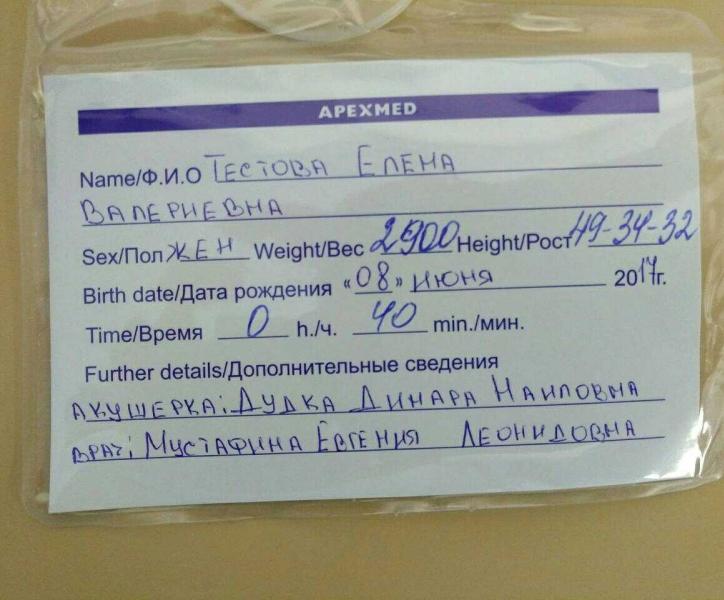 APEXMED
Name/Ф.И.О Тестова Елена
Валериевна
Sex/Пол жен Weight/Вес 2900 Height/Рост 49-34-32
Birth date/Дата рождения «08» июня 2017г.
Time/Время 0 h./ч. 40 min./мин.
Further details/Дополнительные сведения
Акушерка: Дудка Динара Наиловна
врач: Мустафина Евгения Леонидовна